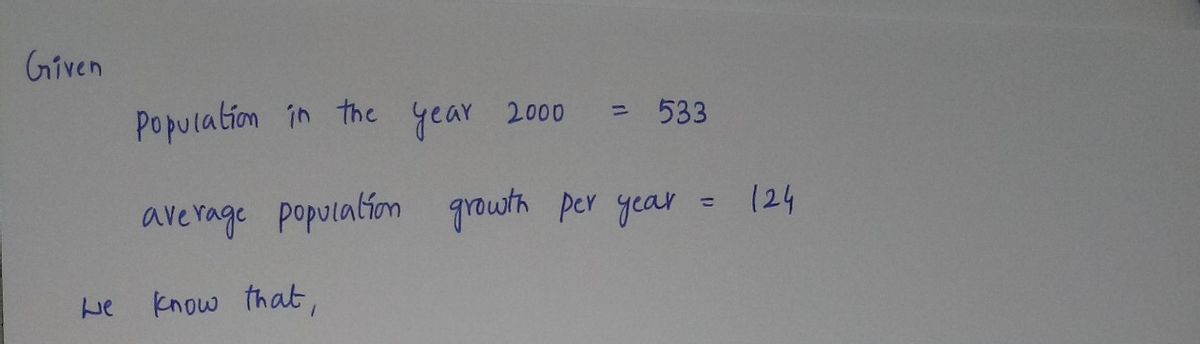 Given
Population in the year 2000 = 533
average population growth per year = 124
We know that,